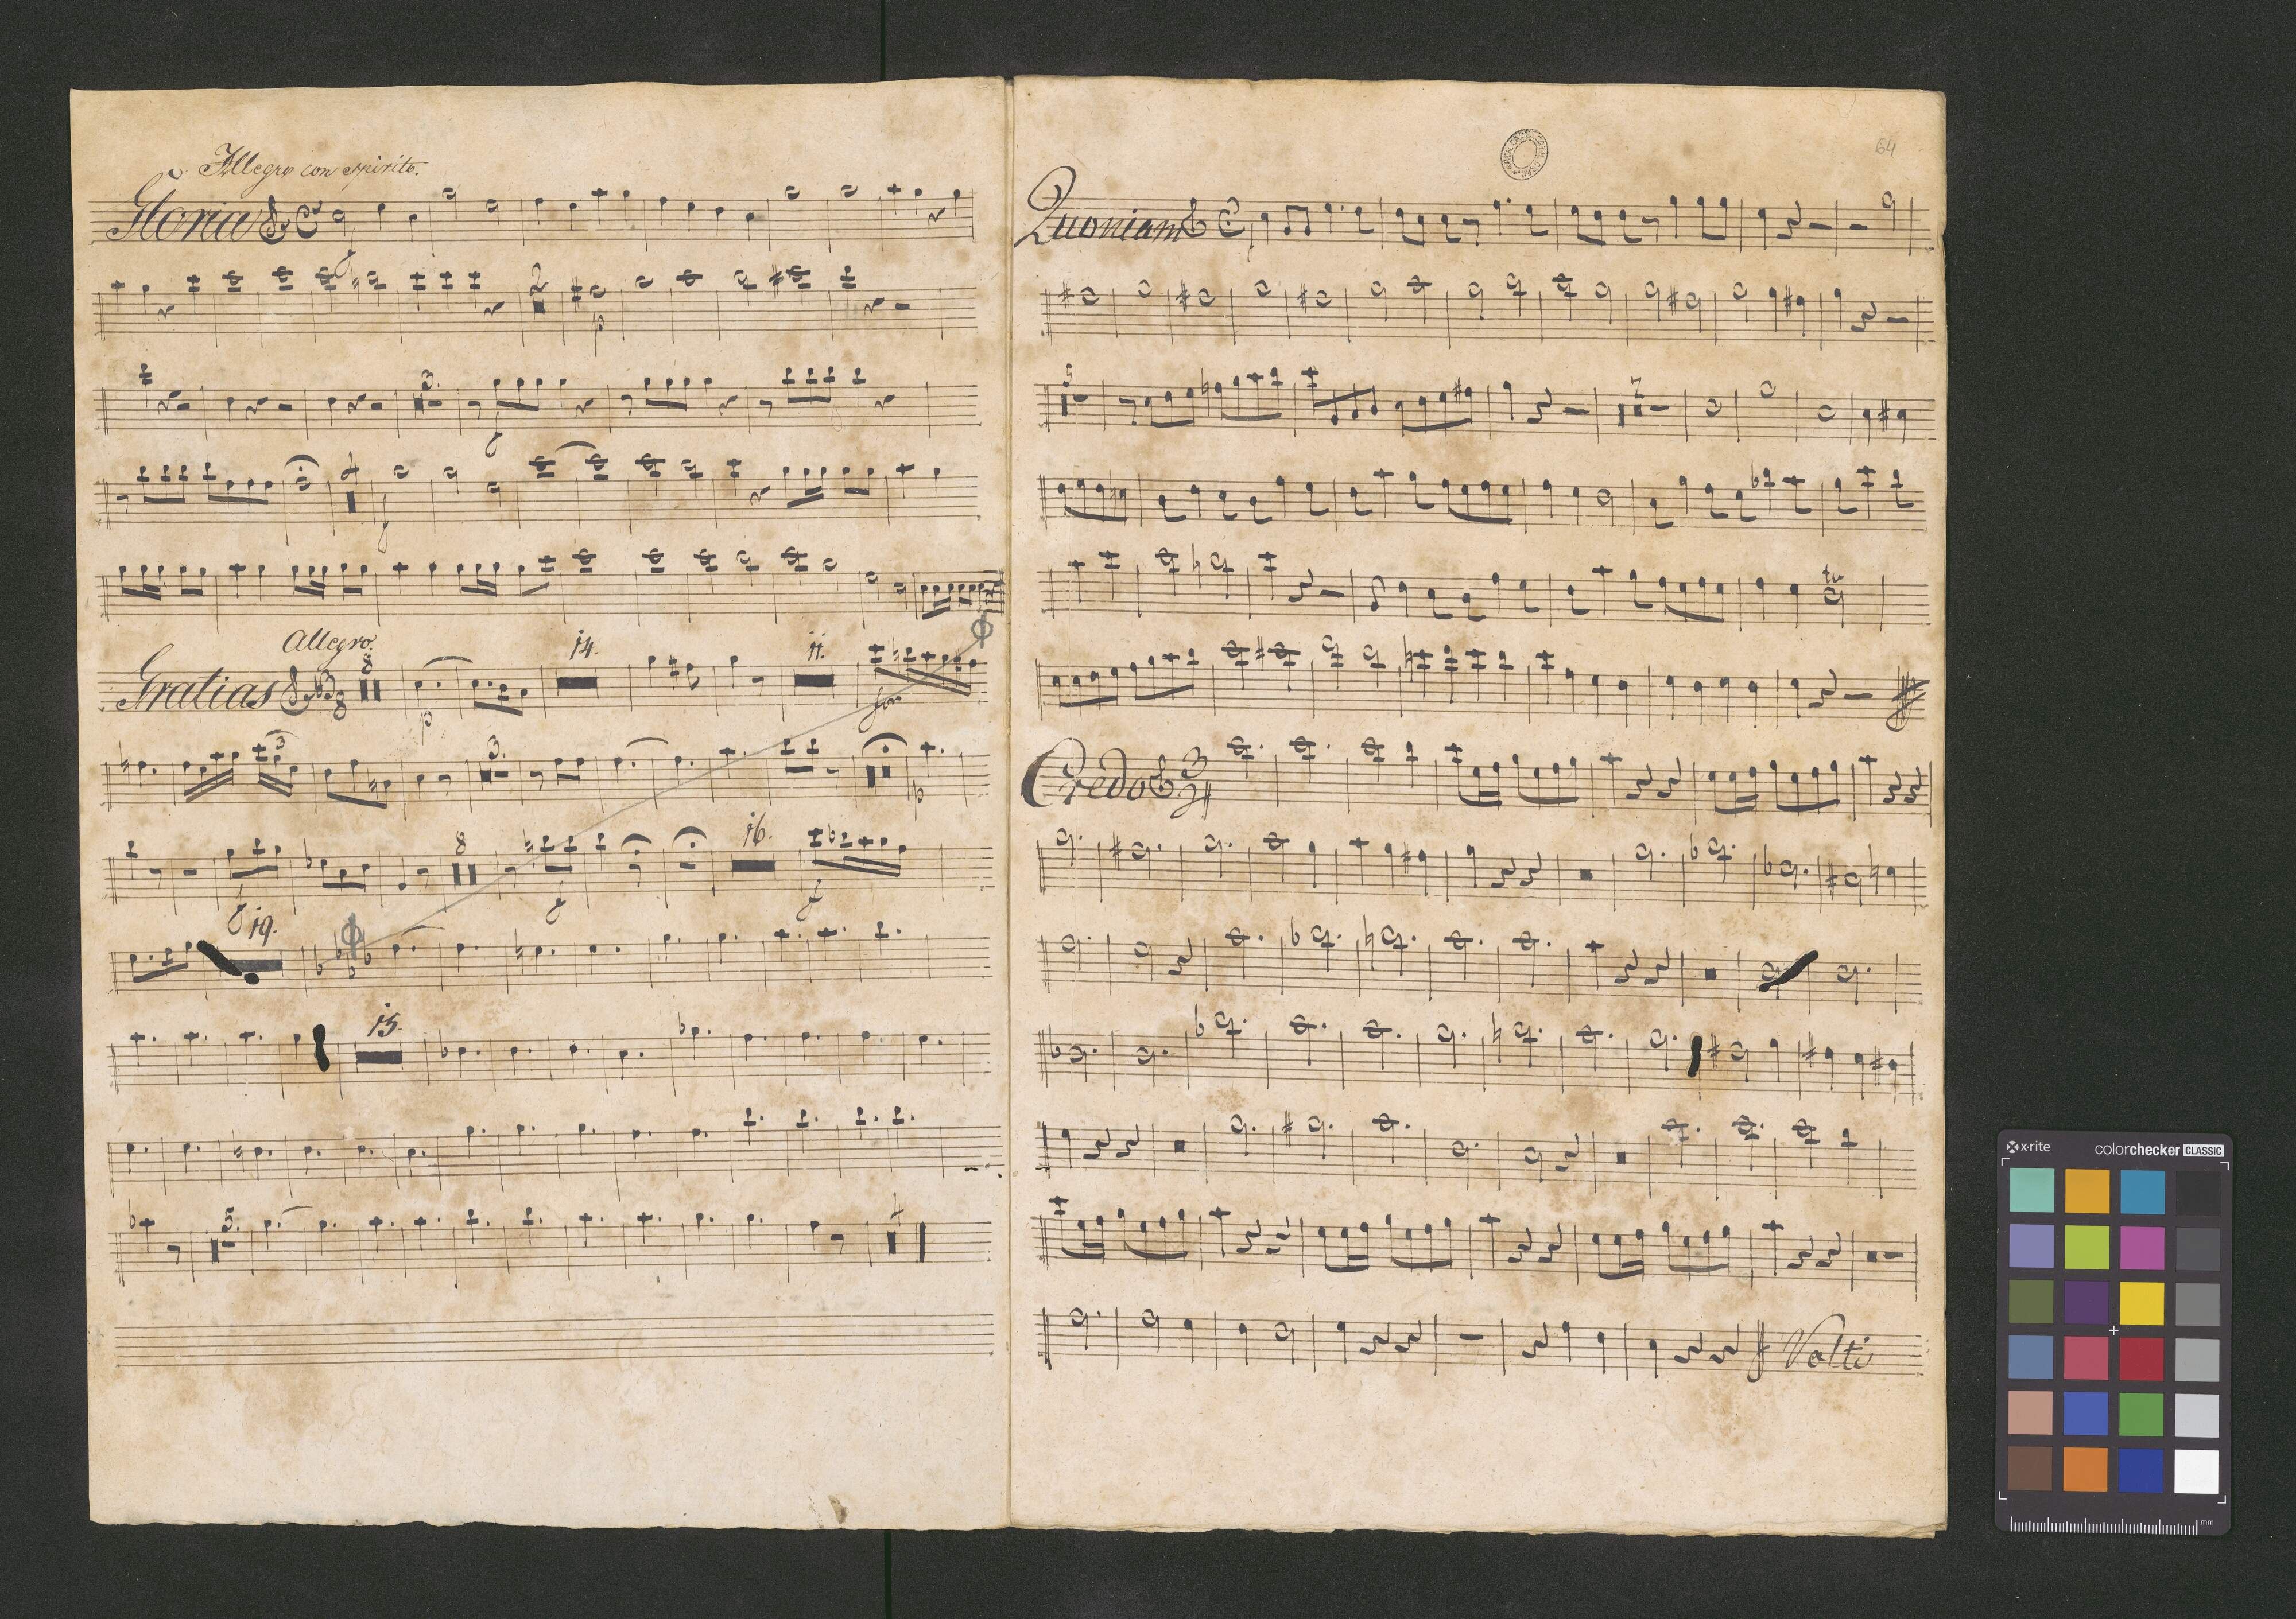 Allegro con spirito.
Gloria
f
2
p
3.
f
f
Allegro.
Gratias 3 8 8 p 14. 11. for
3
3.
p
8
16.
f f f
19.
15
5.
64
Quoniam
5
7
tr
Credo 3 4
Volti
x-rite
colorchecker CLASSIC
mm